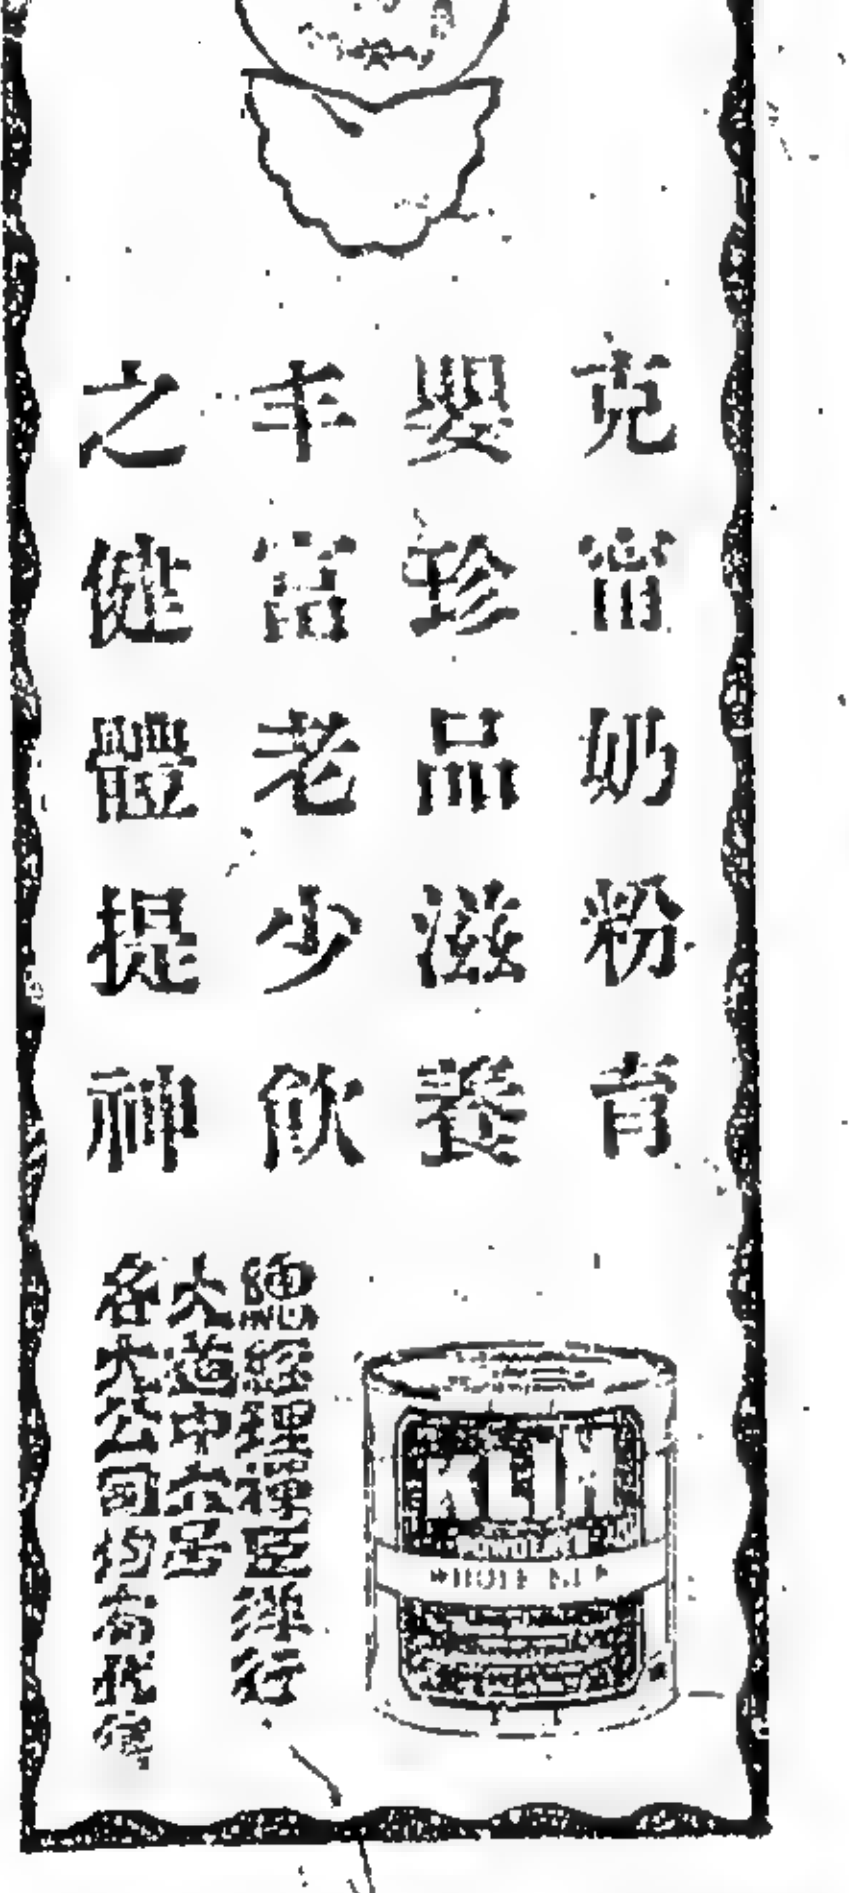 克甯奶粉育
嬰珍品滋養
丰富老少飲
之健體提神
總經理禪臣洋行
大道中六号
各大公司均有代售
KLIM
POWDERED
WHOLE MILK